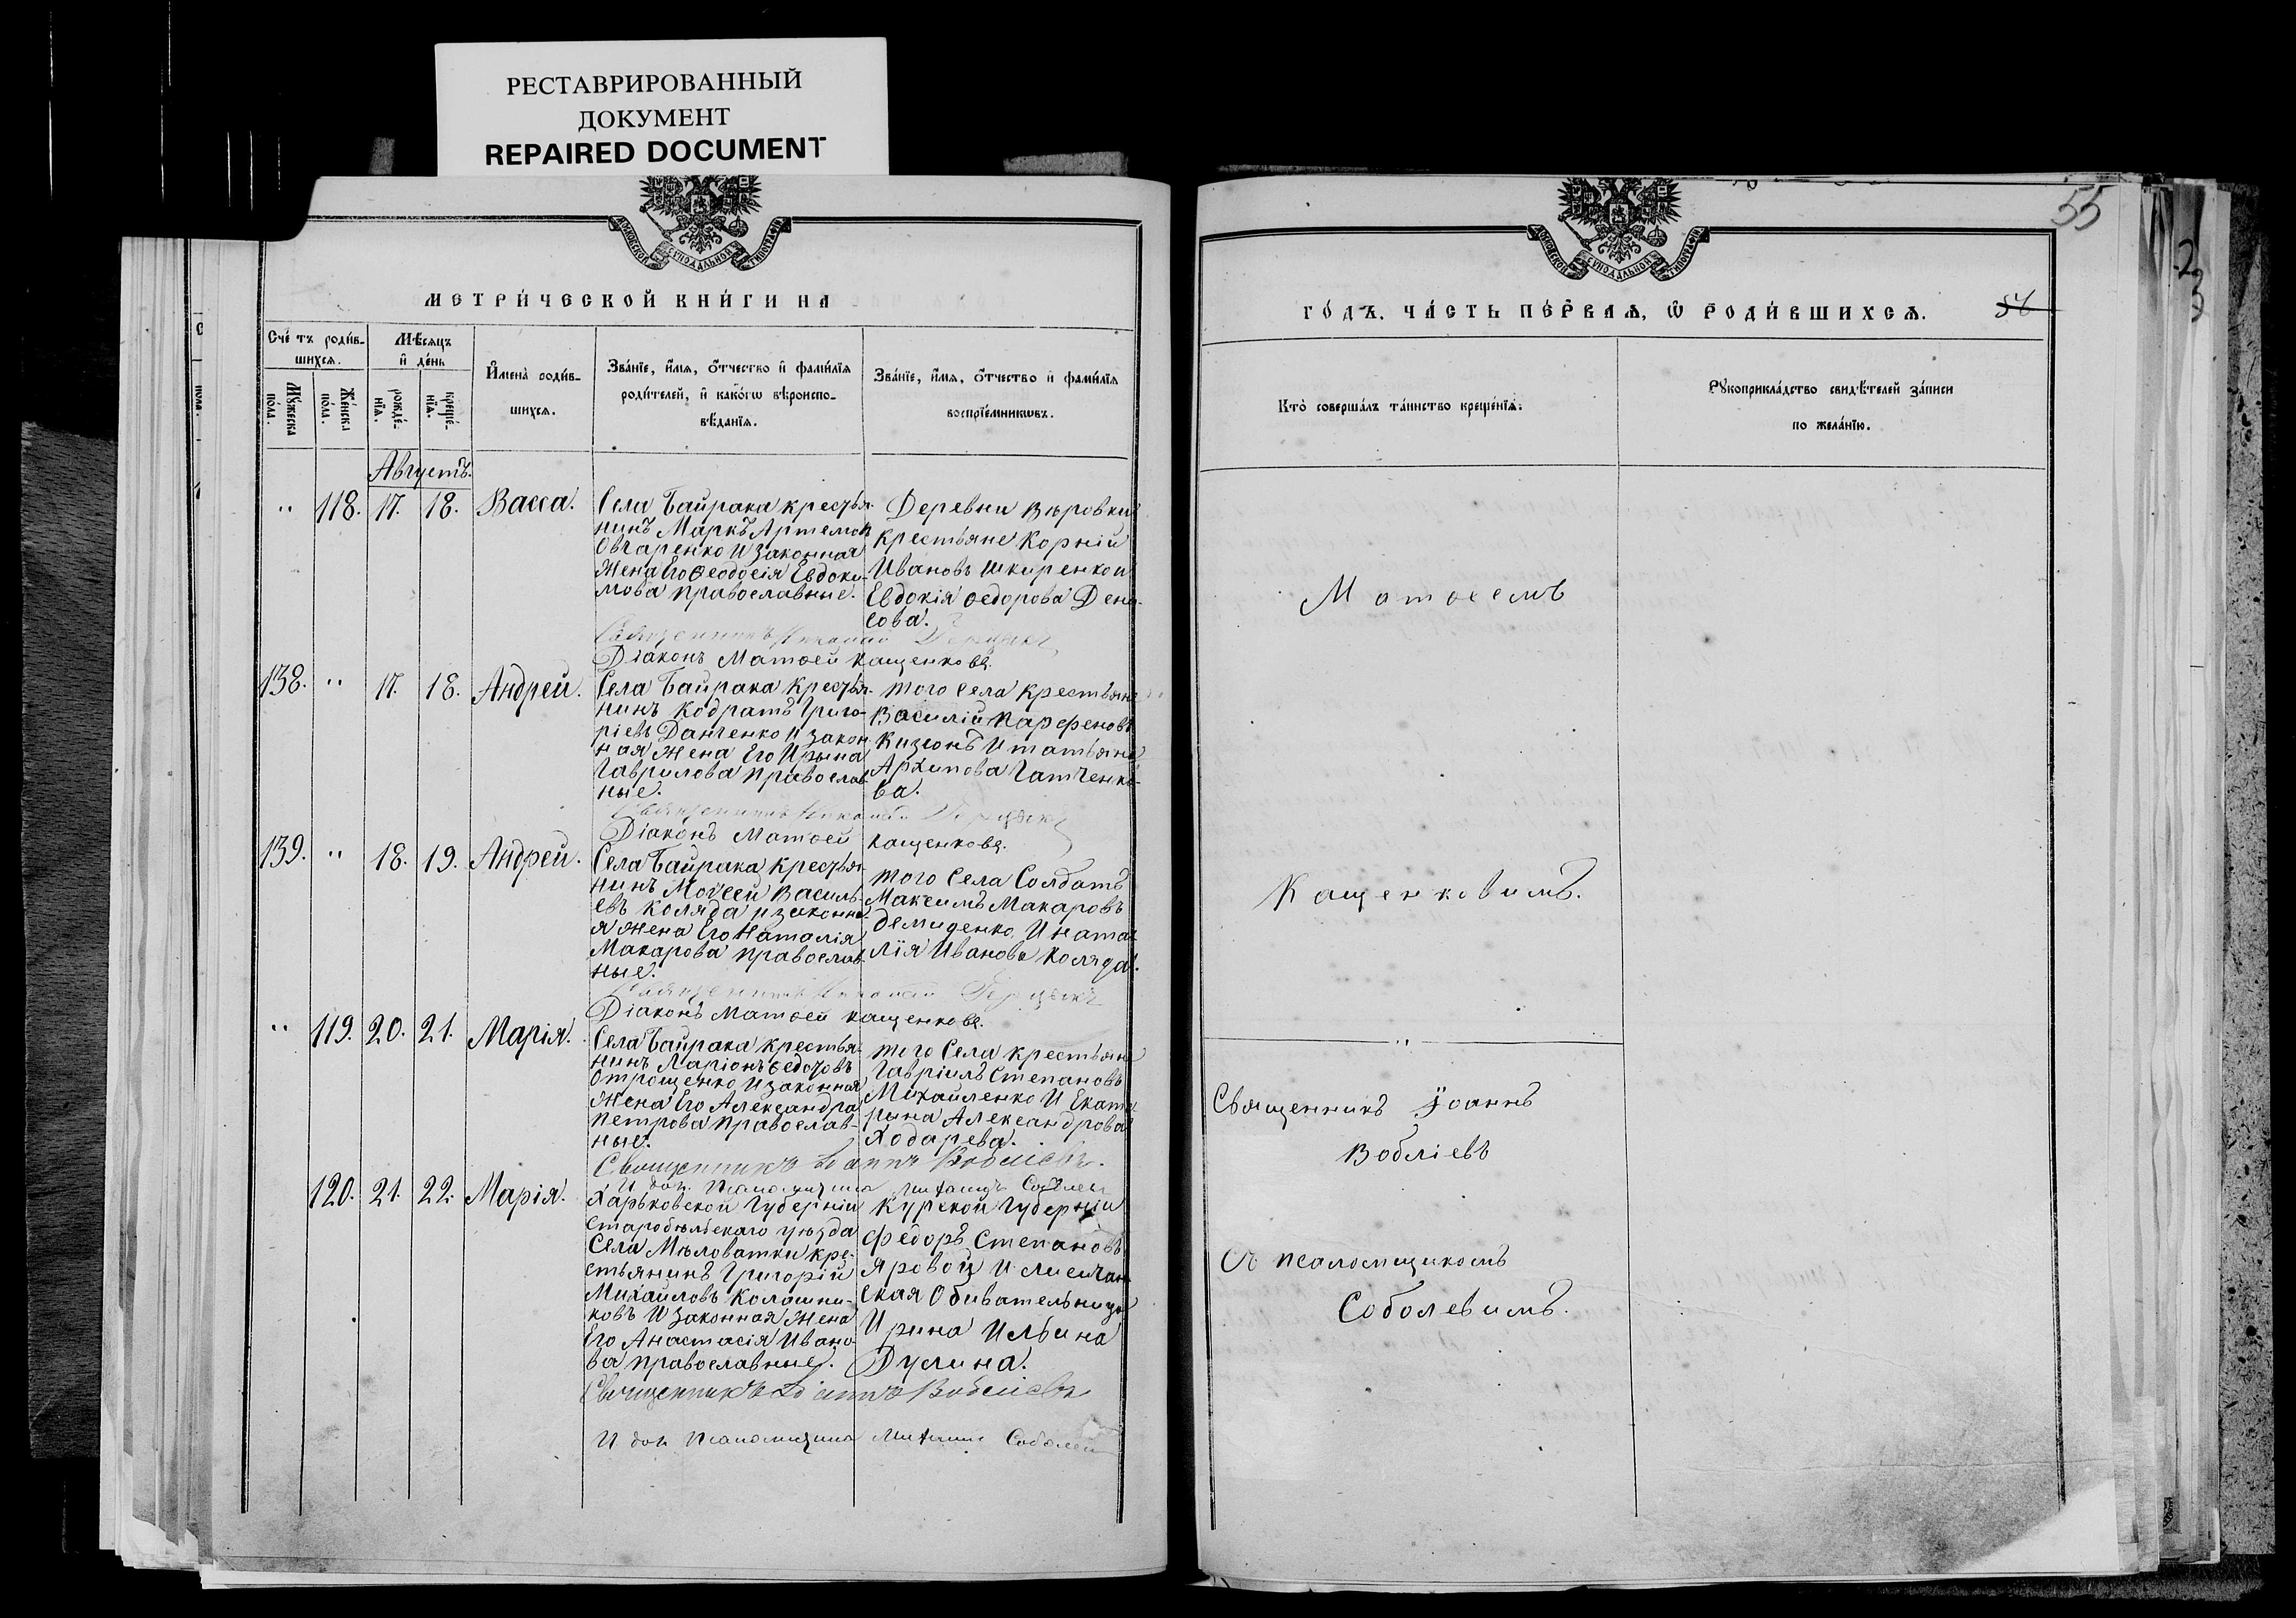 РЕСТАВРИРОВАННЫЙ
ДОКУМЕНТ
REPAIRED DOCUMENT
МОСКОВСКОЙ СѴНОДАЛЬНОЙ ТИПОГРАФІИ
МЕТРИ́ЧЕСКОЙ КНИ́ГИ НА
Сче́тъ роди́в-
шихсѧ.
Мѣсѧцъ
и҆ де́нь
И҆мена̀ роди́в-
шихсѧ.
Зва́нїе, и҆́мѧ, ѻ҆́тчество и҆ фами́лїѧ
роди́телей, и҆ како́гѡ вѣроиспо-
вѣ́данїѧ.
Зва́нїе, и҆́мѧ, ѻ҆́тчество и҆ фами́лїѧ
воспрїе́мникѡвъ.
Мꙋ́жеска
по́ла.
Же́нска
по́ла.
рожде́-
нїѧ.
креще́-
нїѧ.
Августъ.
" 118. 17. 18. Васса.
Села Байрака крестья-
нинъ Маркъ Артемов
Овчаренко и законная
жена его Ѳеодосія Евдоки-
мова православные.
Деревни Вѣровки
крестьяне Корній
Ивановъ Шкиренко и
Евдокія Ѳедорова Дени-
сова.
Священникъ Николай
Діаконъ Матѳей Кащенковъ.
138. " 17. 18. Андрей.
Села Байрака крестья-
нинъ Кодратъ Григо-
ріевъ Данченко и закон
ная жена его Ирина
Гаврилова православ
ные.
того села крестьяне
Василій Парфеновъ
Кизіонъ и татьяна
Архипова Гатченко-
ва.
Священникъ Николай
Діаконъ Матѳей Кащенковъ.
139. " 18. 19. Андрей.
Села Байрака крестья-
нинъ Моѵсей Василь-
евъ Коляда и законна-
я жена его Наталія
Макарова православ-
ные.
того Села Солдатъ
Максимъ Макаровъ
Демиденко и ната
лія Иванова Коляда.
Священникъ Николай
Діаконъ Матѳей Кащенковъ.
" 119. 20. 21. Марія.
Села Байрака крестья-
нинъ Ларіонъ Ѳедоровъ
Отрощенко и законная
жена его Александра
Петрова православ-
ные.
того Села крестьяне
Гавріилъ Степановъ
Михайленко и Екате
рина Александрова
Ходарева.
Священникъ Іоаннъ Вобліевъ.
И дол. Псаломщика Митрофанъ Соболев
120. 21. 22. Марія.
Харьковской Губерніи
Старобѣльскаго уѣзда
Села Мѣловатки кре-
стьянинъ Григорій
Михайловъ Колошни-
ковъ и законная жена
его Анастасія Ивано
ва православные.
Курской Губерніи
Федоръ Степановъ
Яровой и Лисичан
ская Обивательница
Ирина Ильина
Дулина.
Священникъ Іоаннъ Вобліевъ
И дол. Псаломщика Соболев
55
МОСКОВСКОЙ СѴНОДАЛЬНОЙ ТИПОГРАФІИ
ГО́ДЪ. ЧА́СТЬ ПЕ́РВАѦ, Ѽ РОДИ́ВШИХСѦ.
54
Кто̀ соверша́лъ та́инство креще́нїѧ.
Рꙋкоприкла́дство свидѣ́телей за́писи
по жела́нїю.
Матѳеемъ
Кащенковимъ.
"
Священникъ Іоаннъ
Вобліевъ
Съ псаломщикомъ
Соболевимъ.
23